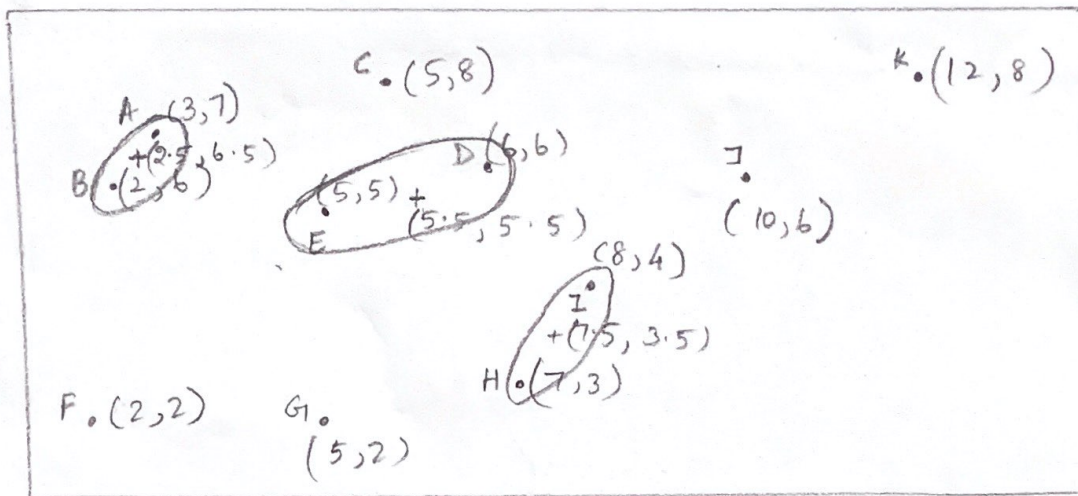 C (5,8)
K (12,8)
A (3,7)
+(2.5, 6.5)
B (2, 6)
D (6,6)
J
(10,6)
(5,5) +
(5.5, 5.5)
E
(8,4)
I
+(7.5, 3.5)
H (7,3)
F (2,2)
G
(5,2)